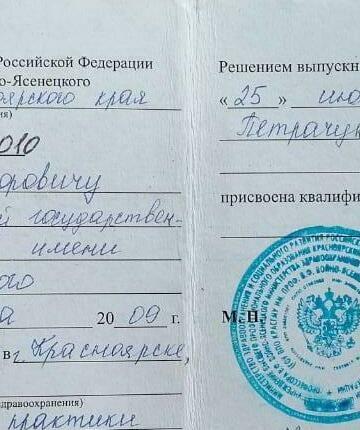 Российской Федерации
о-Ясенецкого
оярского края
ия)
010
оровичу
й государствен-
имени
ого
а 20 09 г.
в г. Красноярске,
здравоохранения)
практики
Решением выпускн
« 25 » ию
Петрачук
присвоена квалифи
М.П.